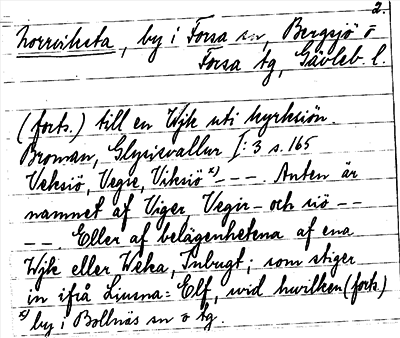 2.
Norrviksta, by i Forsa sn, Bergsjö o
Forsa tg, Gävleb. l.
(forts.) till en Wjk uti Kyrksiön.
Broman, Glysisvallur I:3 s. 165
Veksiö, Vegse, Viksiö x) – – . Anten är
namnet af Viger Vegir– och siö – –
– – . Eller af belägenhetena af ena
Wjk eller Weka, Inbugt; som stiger
in ifrå Liusna= Elf, wid hwilken (forts.)
x) by i Bollnäs sn o tg.